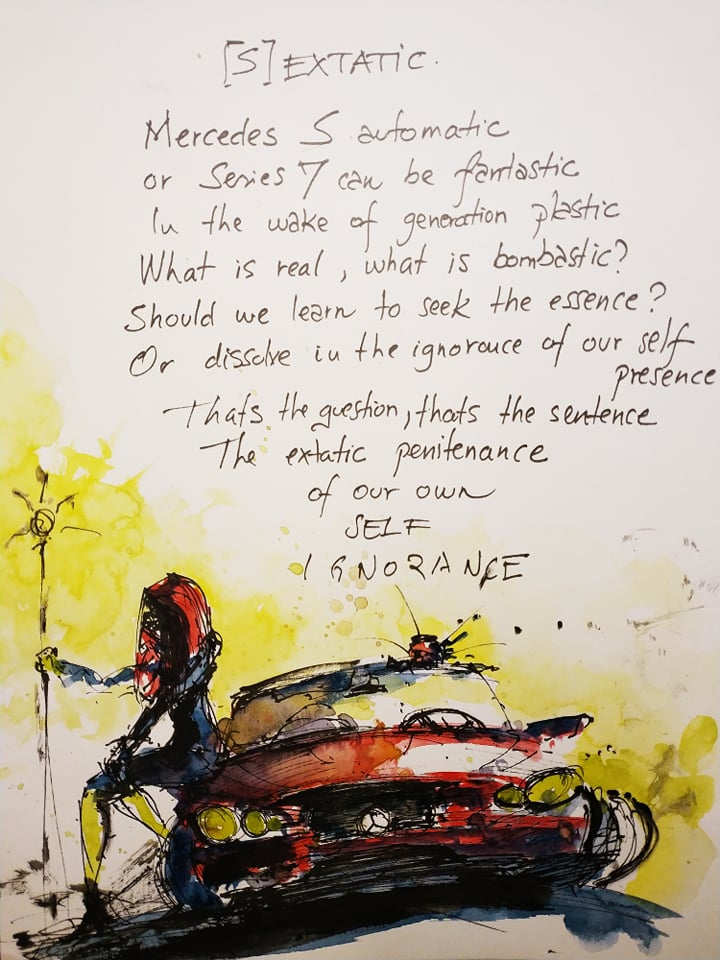 [S] EXTATIC.
Mercedes S automatic
or Series 7 can be fantastic
In the wake of generation plastic
What is real, what is bombastic?
Should we learn to seek the essence?
Or dissolve in the ignorance of our self
presence
Thats the question, thats the sentence
The extatic penitenance
of our own
SELF
IGNORANCE